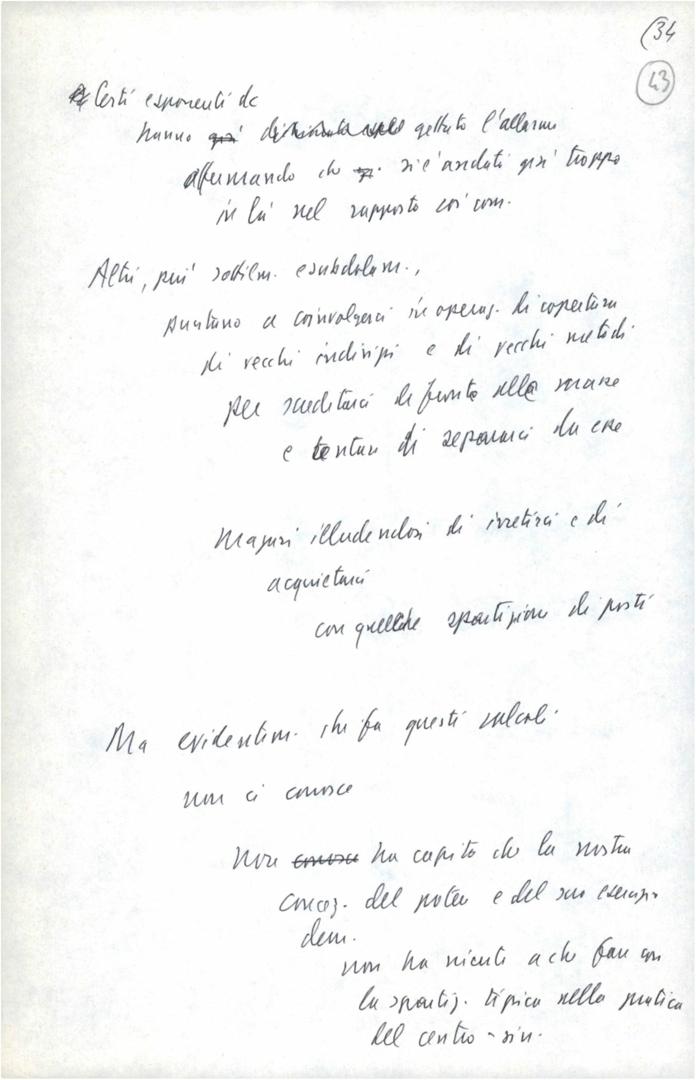 (34
43
Certi esponenti dc
hanno già gettato l'allarme
affermando che si è andati già troppo
in là nel rapporto coi com.
Altri, più sottilm. e subdolam.,
puntano a coinvolgerci in operaz. di copertura
di vecchi indirizzi e di vecchi metodi
per screditarci di fronte alle masse
e tentare di separarci da esse
Magari illudendosi di irretirci e di
acquietarci
con qualche spartizione di posti
Ma evidentem. chi fa questi calcoli
non ci conosce
Non conosce ha capito che la nostra
concez. del potere e del suo esercizio
dem.
non ha niente a che fare con
la spartiz. tipica nella pratica
del centro-sin.